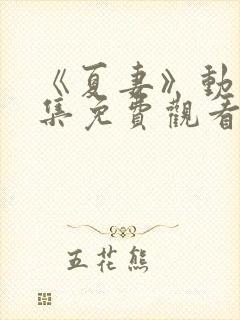 《夏妻》動
集免費觀看
五花熊